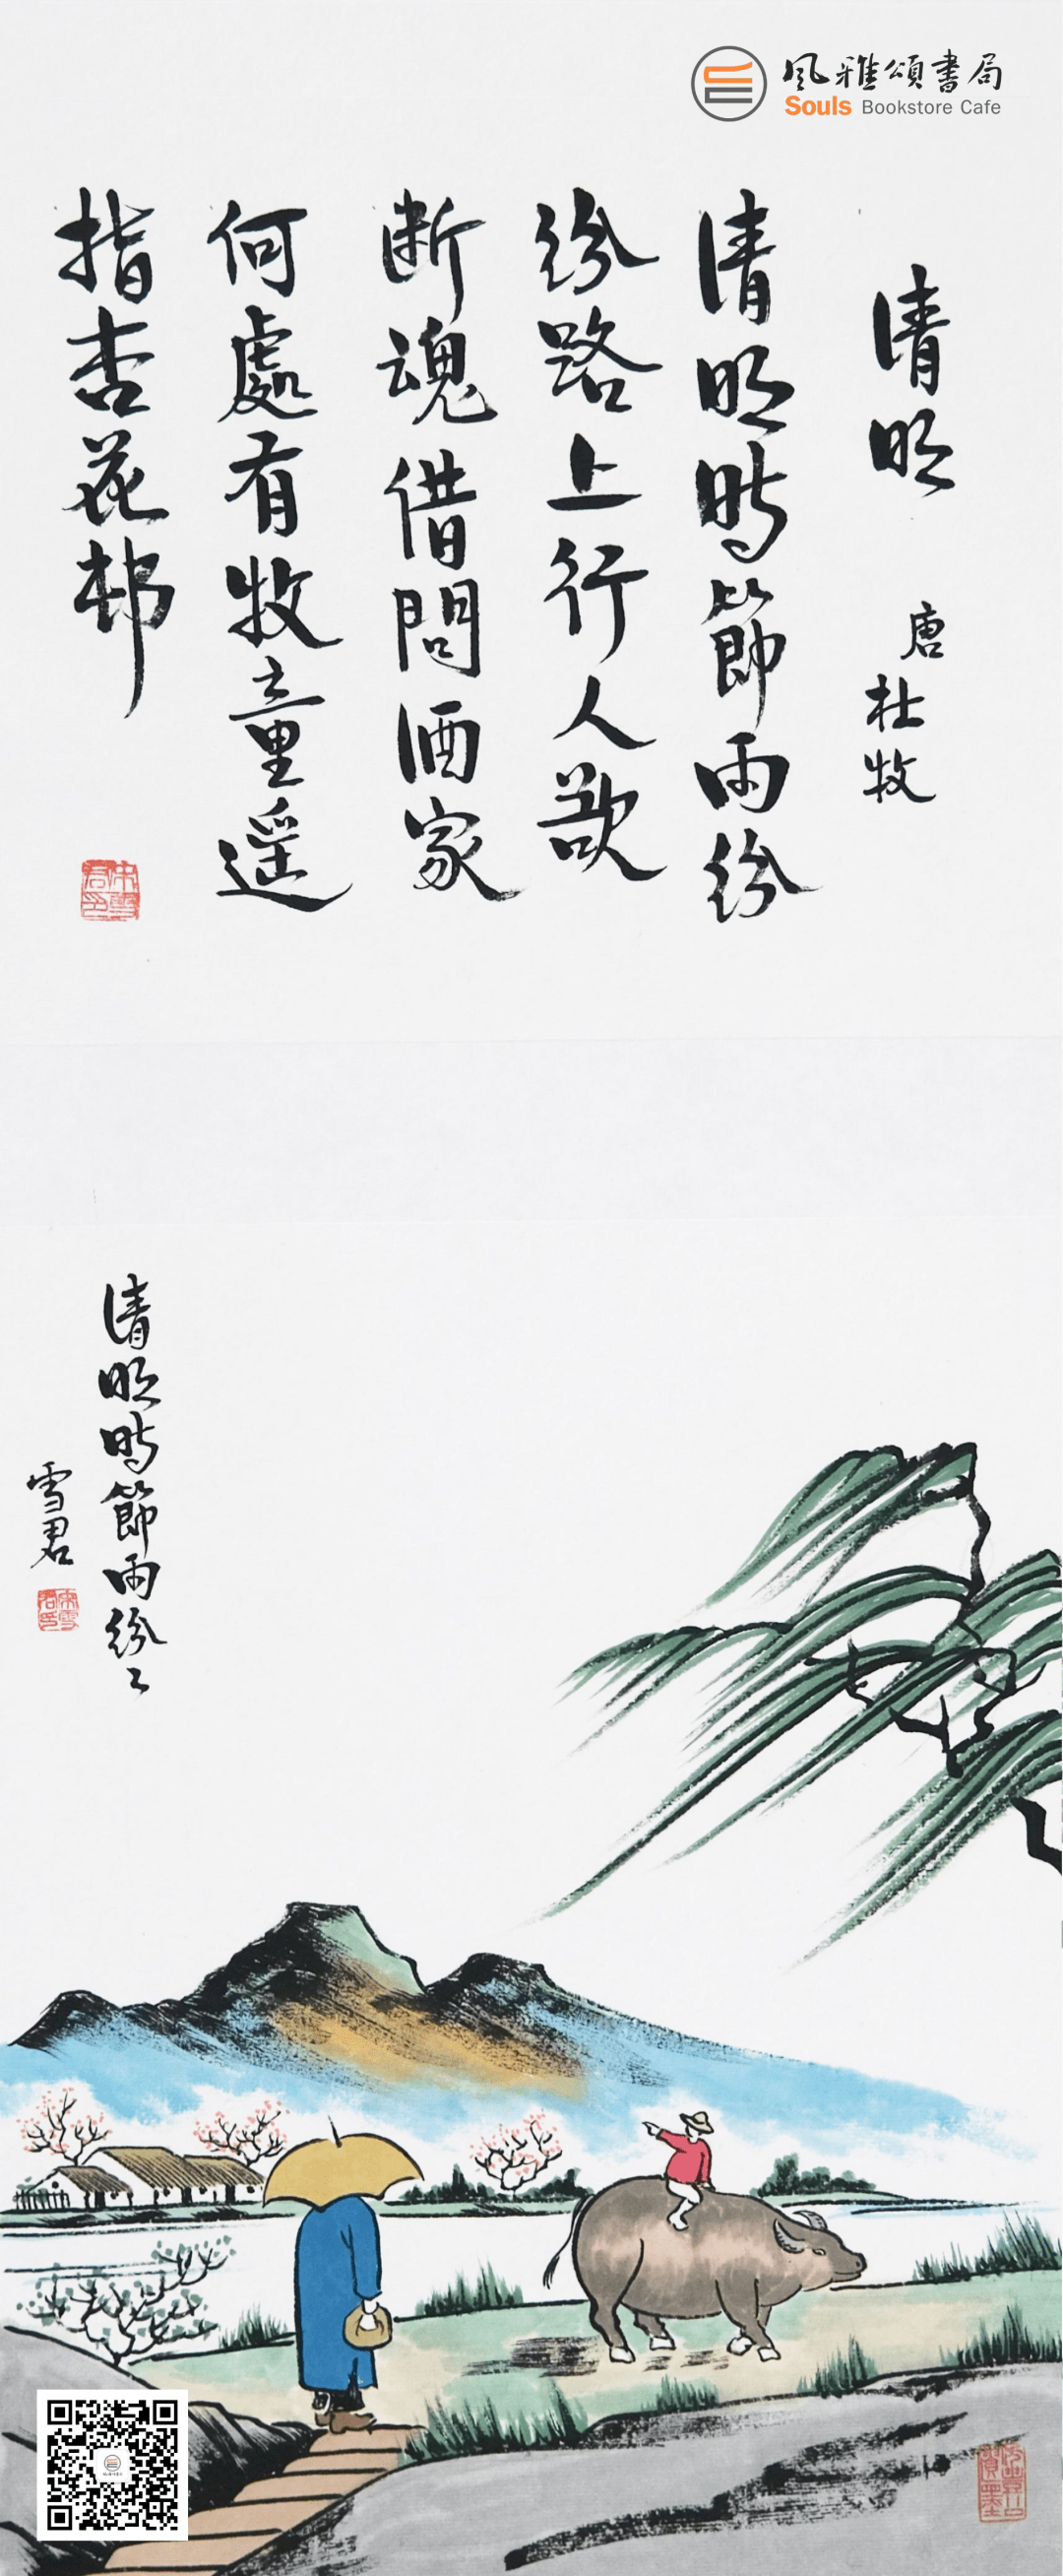 風雅頌書局
Souls Bookstore Cafe
清明
唐
杜牧
清明時節雨紛
紛路上行人欲
断魂借問酒家
何處有牧童遥
指杏花邨
清明時節雨紛〻
雪君